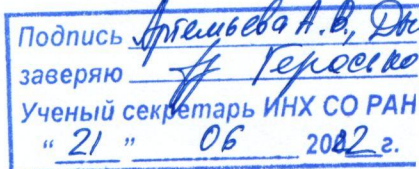 Подпись Артемьева А.В., Ды
заверяю Герасько
Ученый секретарь ИНХ СО РАН
“ 21 ” 06 2022 г.